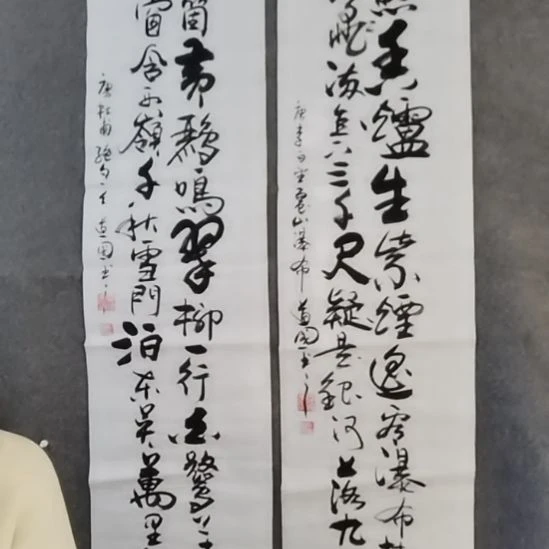 香爐生紫煙遙看瀑布
飛流直下三千尺疑是銀河落九
唐李白望廬山瀑布
箇黃鸝鳴翠柳一行白鷺上
窗含西嶺千秋雪門泊東吳萬里
唐杜甫絕句